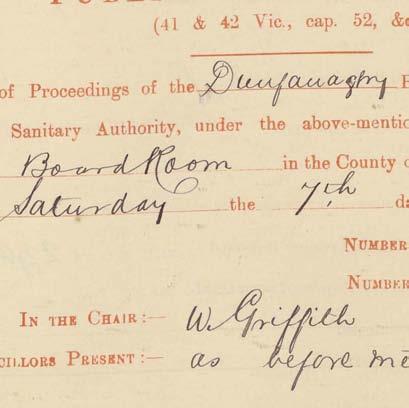 (41 & 42 Vic., cap. 52, &c
of Proceedings of the Dunfanaghy
Sanitary Authority, under the above-mentio
Board Room in the County o
Saturday the 7th da
NUMBER
NUMBER
IN THE CHAIR :— W. Griffith
CILLORS PRESENT :— as before me